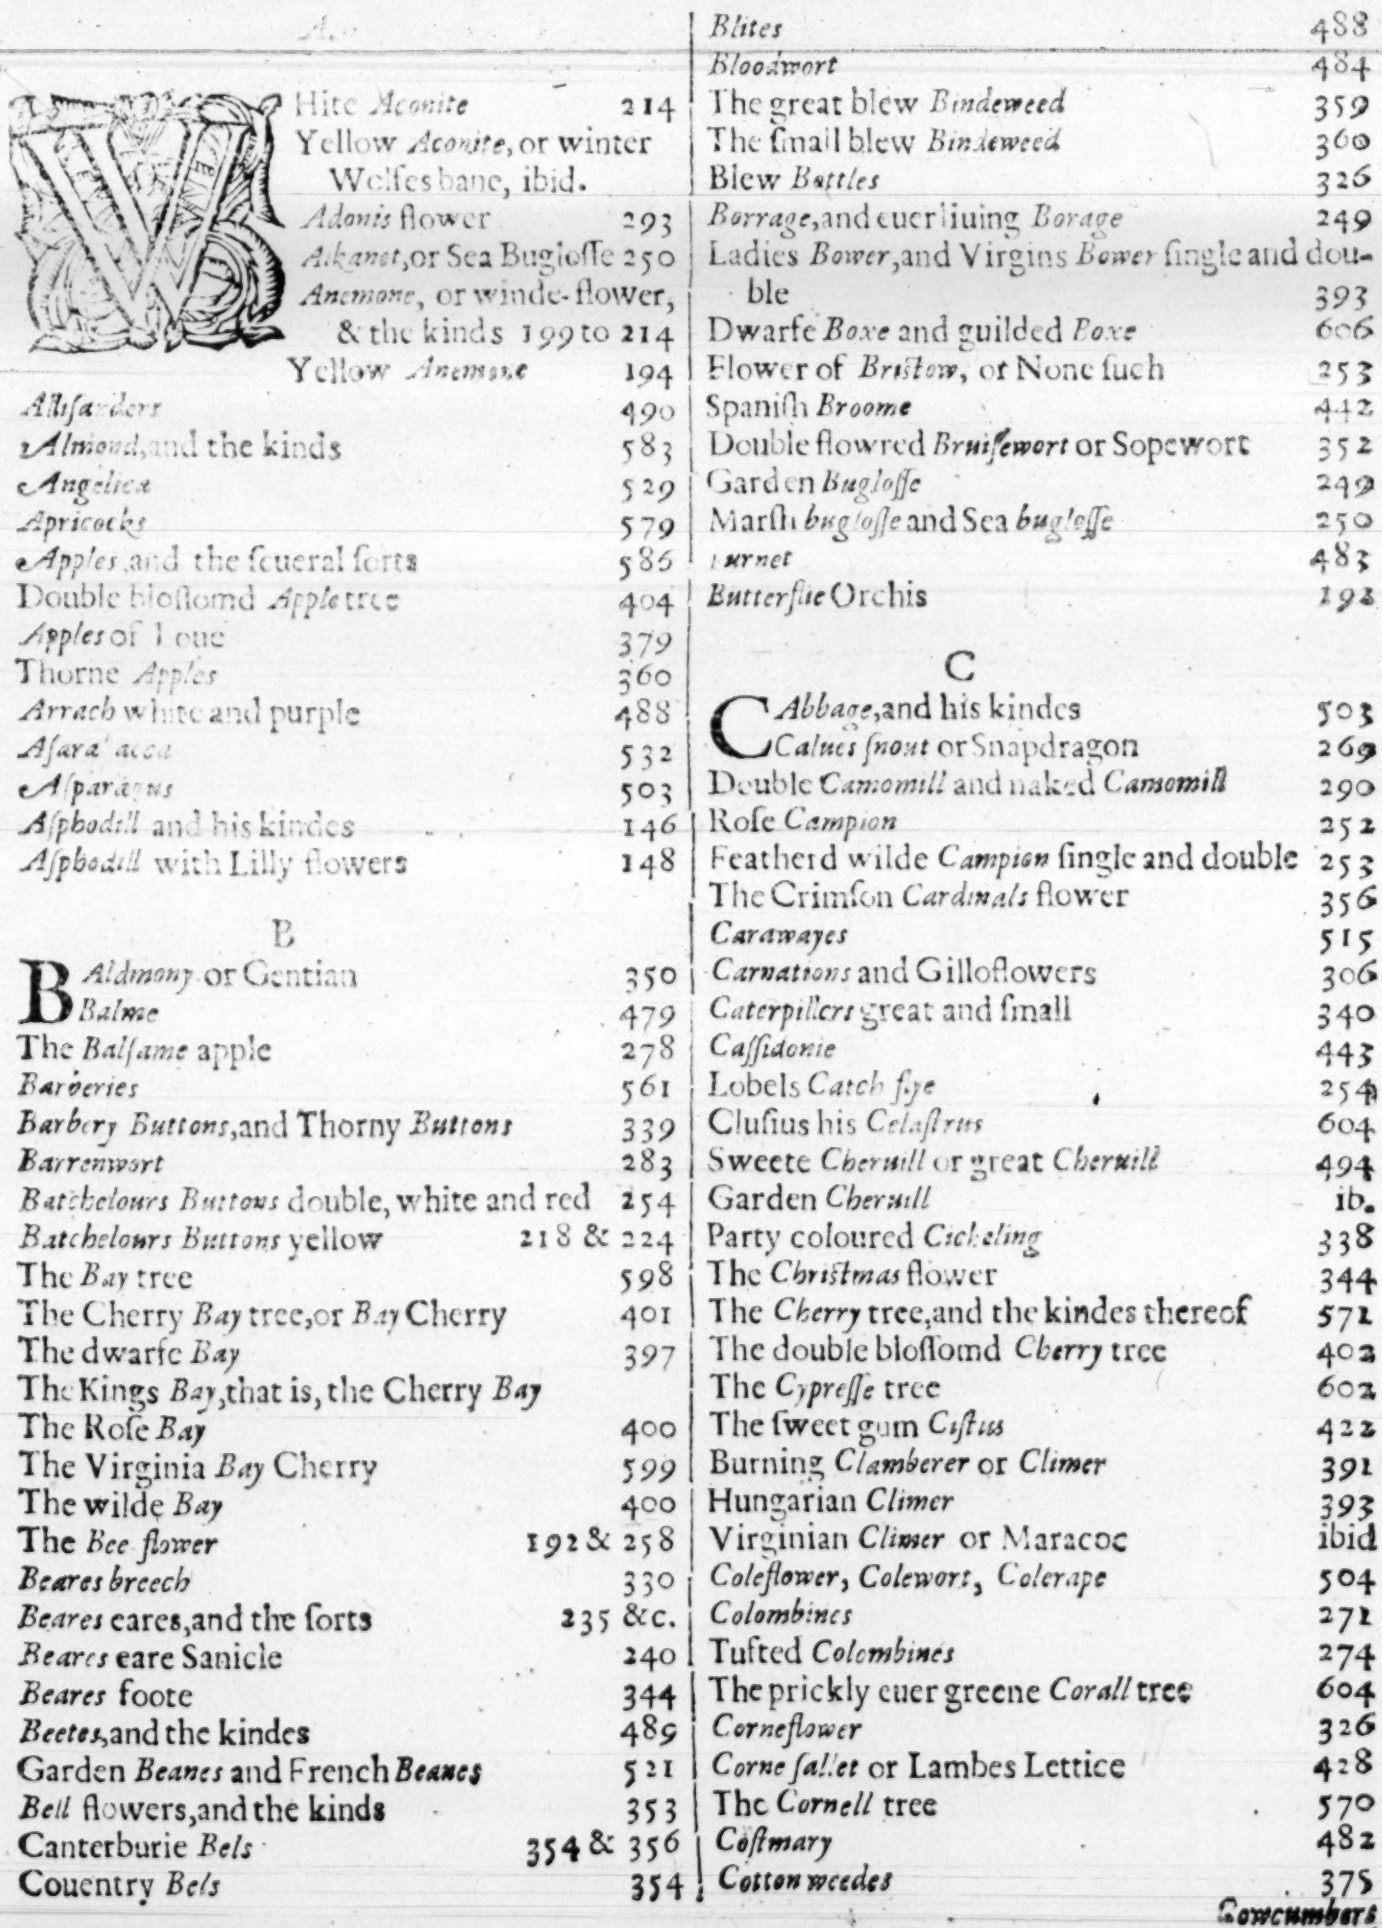 A.
WHite Aconite 214
Yellow Aconite, or winter
Wolfesbane, ibid.
Adonis flower 293
Alkanet, or Sea Buglosse 250
Anemone, or winde-flower,
& the kinds 199 to 214
Yellow Anemone 194
Allisanders 490
Almond, and the kinds 583
Angelica 529
Apricocks 579
Apples, and the seueral sorts 586
Double blossomd Apple tree 404
Apples of Loue 379
Thorne Apples 360
Arrach white and purple 488
Asarabacca 532
Asparagus 503
Asphodill and his kindes 146
Asphodill with Lilly flowers 148
B
BAldmony or Gentian 350
Balme 479
The Balsame apple 278
Barberies 561
Barbery Buttons, and Thorny Buttons 339
Barrenwort 283
Batchelours Buttons double, white and red 254
Batchelours Buttons yellow 218 & 224
The Bay tree 598
The Cherry Bay tree, or Bay Cherry 401
The dwarfe Bay 397
The Kings Bay, that is, the Cherry Bay
The Rose Bay 400
The Virginia Bay Cherry 599
The wilde Bay 400
The Bee flower 192 & 258
Beares breech 330
Beares eares, and the sorts 235 &c.
Beares eare Sanicle 240
Beares foote 344
Beetes, and the kindes 489
Garden Beanes and French Beanes 521
Bell flowers, and the kinds 353
Canterburie Bels 354 & 356
Couentry Bels 354
Blites 488
Bloodwort 484
The great blew Bindeweed 359
The small blew Bindeweed 360
Blew Bottles 326
Borrage, and euerliuing Borage 249
Ladies Bower, and Virgins Bower single and dou-
ble 393
Dwarfe Boxe and guilded Boxe 606
Flower of Bristow, or None such 253
Spanish Broome 442
Double flowred Bruisewort or Sopewort 352
Garden Buglosse 249
Marsh buglosse and Sea buglosse 250
Burnet 483
Butterflie Orchis 192
C
CAbbage, and his kindes 503
Calues snout or Snapdragon 269
Double Camomill and naked Camomill 290
Rose Campion 252
Featherd wilde Campion single and double 253
The Crimson Cardinals flower 356
Carawayes 515
Carnations and Gilloflowers 306
Caterpillers great and small 340
Cassidonie 443
Lobels Catch flye 254
Clusius his Celastrus 604
Sweete Cheruill or great Cheruill 494
Garden Cheruill ib.
Party coloured Cicheling 338
The Christmas flower 344
The Cherry tree, and the kindes thereof 571
The double blossomd Cherry tree 402
The Cypresse tree 602
The sweet gum Cistus 422
Burning Clamberer or Climer 391
Hungarian Climer 393
Virginian Climer or Maracoc ibid
Coleflower, Colewort, Colerape 504
Colombines 271
Tufted Colombines 274
The prickly euer greene Corall tree 604
Corneflower 326
Corne sallet or Lambes Lettice 428
The Cornell tree 570
Costmary 482
Cotton weedes 375
Cowcumbers